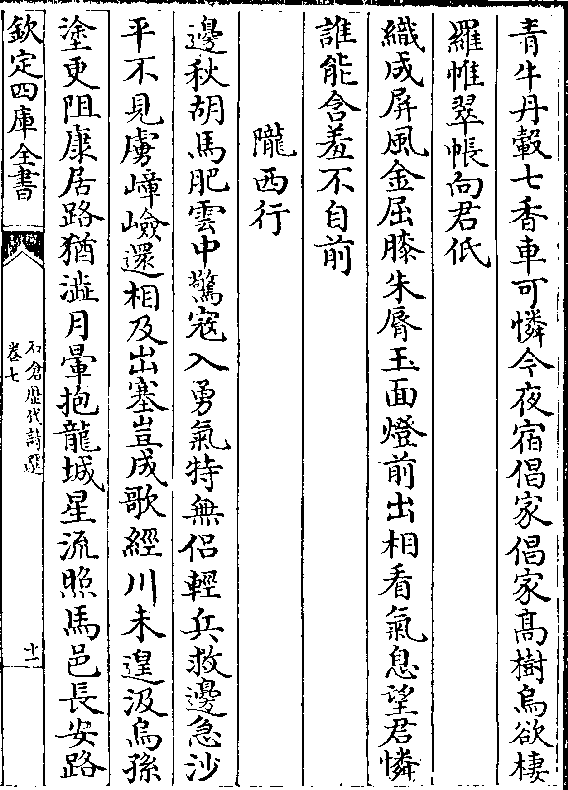 青牛丹轂七香車可憐今夜宿倡家倡家髙樹烏欲棲
羅帷翠帳向君低
織成屏風金屈膝朱脣玉面燈前出相看氣息望君憐
誰能含羞不自前
隴西行
邊秋胡馬肥雲中驚寇入勇氣特無侣輕兵救邊急沙
平不見虜嶂嶮還相及出塞豈成歌經川未遑汲烏孫
塗更阻康居路猶澁月暈抱龍城星流照馬邑長安路
欽定四庫全書
石倉歴代詩選
卷七
十一